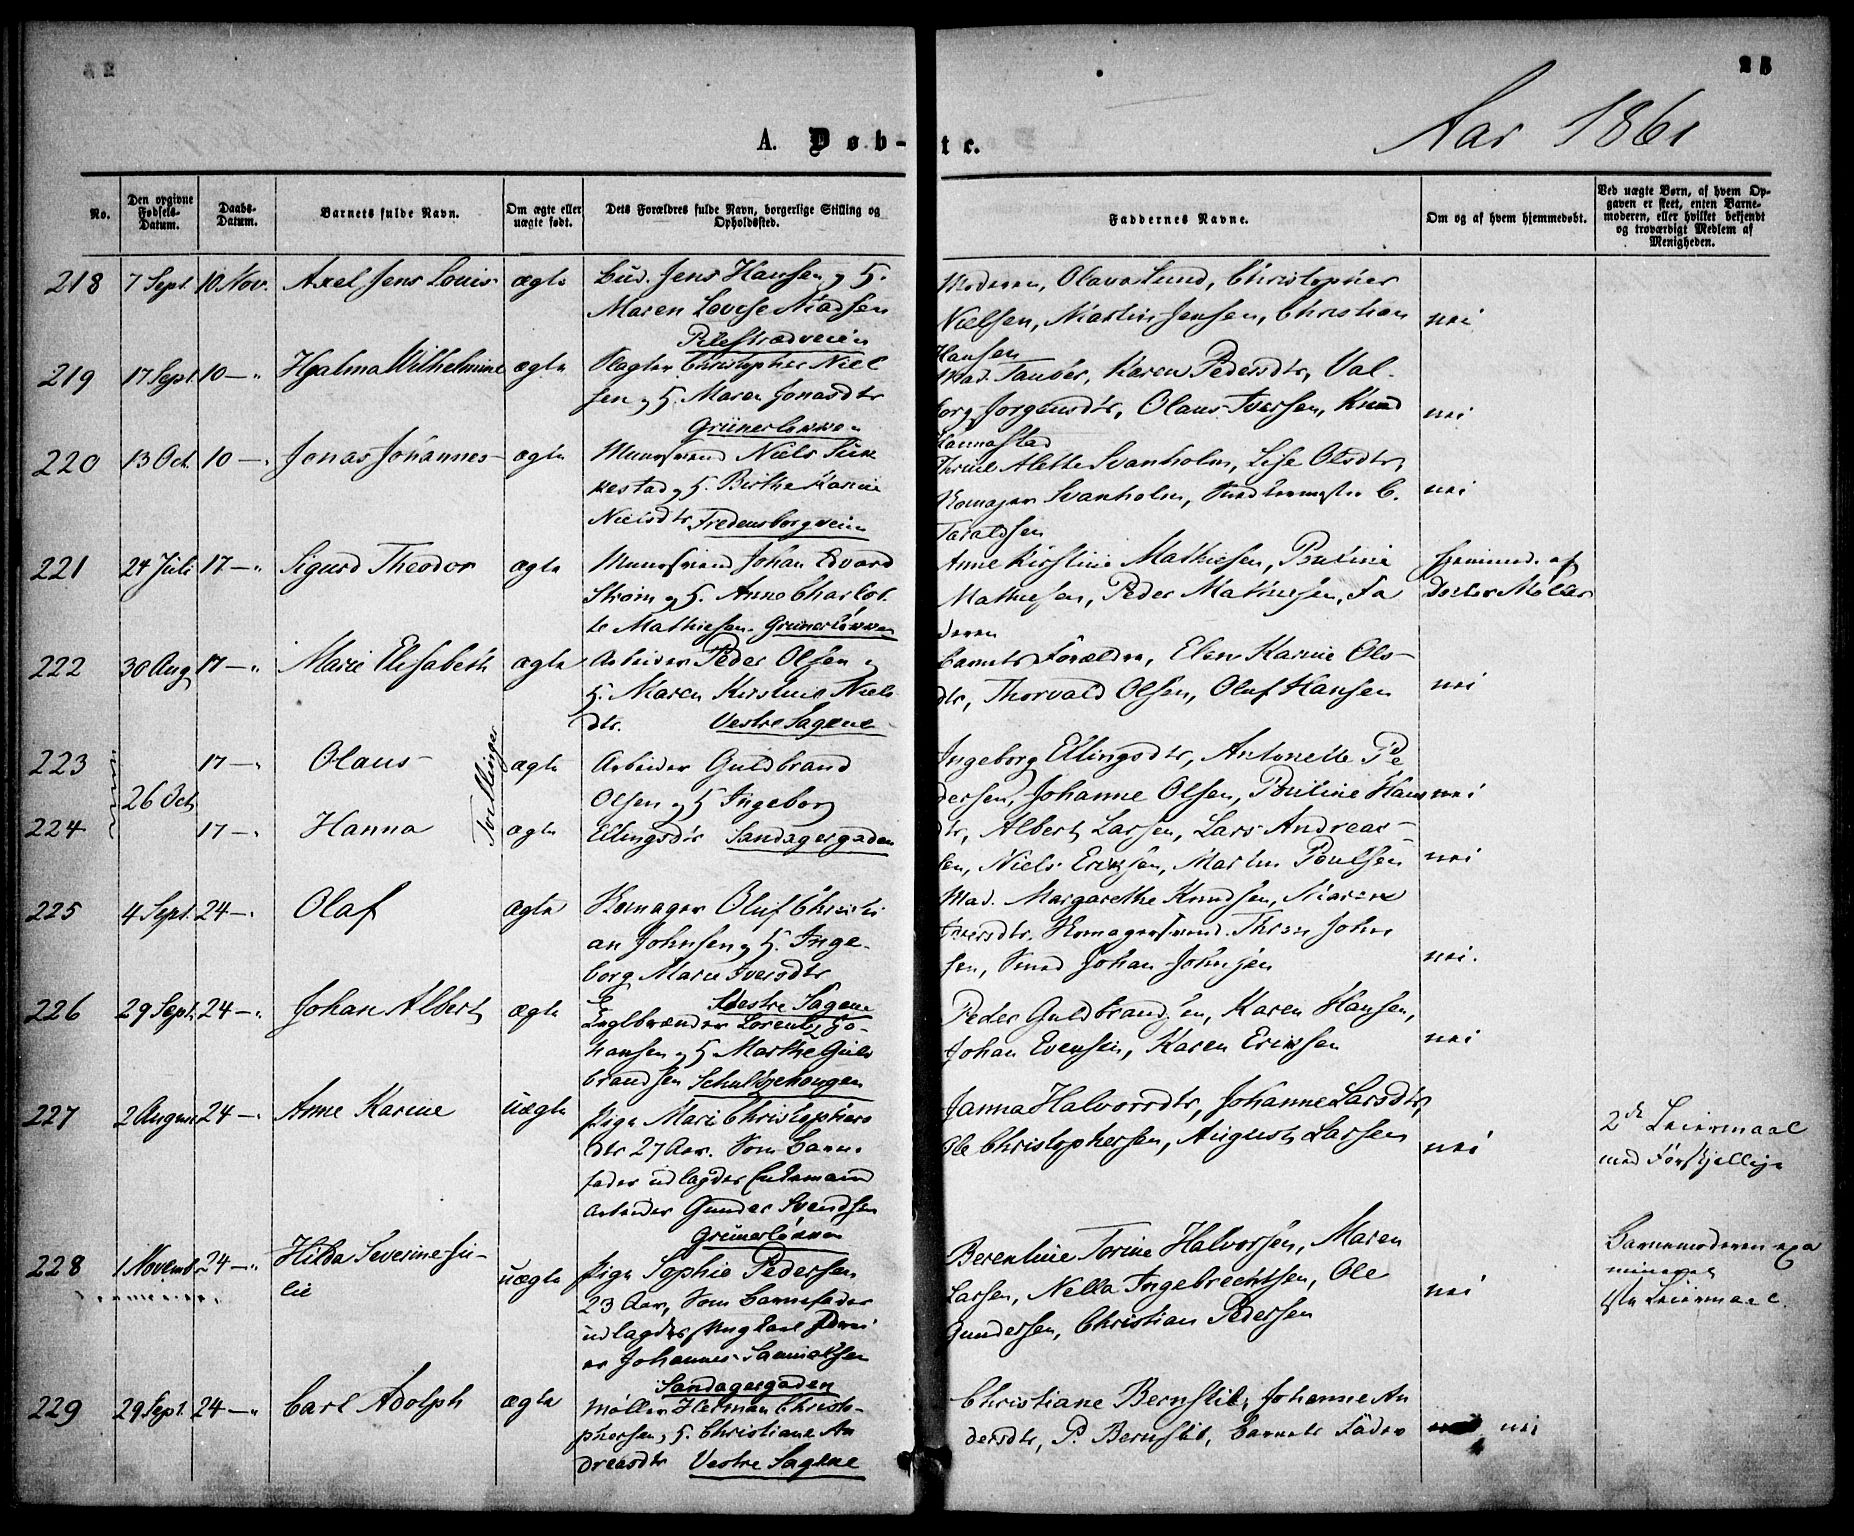 25
Aar 1861
A. Døb-
te.
No.
Den opgivne Fødsels-Datum.
Daabs-Datum.
Barnets fulde Navn.
Om ægte eller uægte født.
Dets Forældres fulde Navn, borgerlige Stilling og Opholdssted.
Faddernes Navne.
Om og af hvem hjemmedøbt.
Ved uægte Børn, af hvem Op-
gaven er skeet, enten Barne-
moderen, eller hvilket bekjendt
og troværdigt Medlem af
Menigheden.
218 7 Sept. 10 Nov. Axel Jens Louis ægte Bud. Jens Hansen og H.
Maren Lovise Madsen
Pilestrædveien
Moderen, Olava Lund, Christopher
Nielsen, Martin Jensen, Christian nei
Hansen
219 17 Sept. 10 —" Hjalma Wilhelmine ægte Slagter Christopher Niel
sen og H. Maren Jonasdtr
Grünerløkken
Mad. Tauber, Karen Pedersdtr, Val-
borg Jørgensdtr, Olaus Iversen, Knud nei
Hannastad
220 13 Oct. 10 —" Jonas Johannes ægte Muursvend Niels Sirk
kestad og H. Birthe Karine
Nielsdtr. Fredensborgveien
Thrine Alette Svanholm, Lise Olsdtr,
Skomager Svanholm, C. nei
Taraldsen
221 24 Juli 17 —" Sigurd Theodor ægte Muursvend Johan Edvard
Strøm og H. Anne Charlot
te Mathiesen. Grünerløkken
Anne Kirstine Mathiesen, Pauline hjemmed. af
Mathiesen, Peder Mathiesen, Fa Doctor Møller
deren
222 30 Aug 17 —" Marie Elisabeth ægte Arbeider Peder Olsen og
H. Maren Kirstine Niels
dtr. Vestre Sagene
Barnets Forældre, Elen Karine Ols-
dtr, Thorvald Olsen, Oluf Hansen nei
223 17 —" Olaus ægte Arbeider Guldbrand
26 Oct Tvillinger Olsen og H Ingeborg
224 17 —" Hanna ægte Ellingsdtr Sandagergaden
Ingeborg Ellingsdtr, Antonette Pe
dersen, Johanne Olsen, Pauline Hans nei
dtr, Albert Larsen, Lars Andreas-
sen, Niels Eriksen, Martin Poulsen nei
225 4 Sept. 24 —" Olaf ægte Skomager Oluf Christi
an Johnsen og H. Inge-
borg Marie Iversdtr
Vestre Sagene
Mad. Margarethe Knudsen, Maren
Iversdtr. Skomagersvend. Thron John
sen, Smed Johan Johnsen nei.
226 29 Sept. 24 —" Johan Albert ægte Teglbrænder Lorentz Jo-
hansen og H Marthe Gul
brandsen Schultzehougen
Peder Guldbrandsen, Karen Hansen,
Johan Evensen, Karen Eriksen nei
227 2 August 24 —" Anne Karine uægte Pige Mari Christophers
dtr 27 Aar. Som Barne
fader udlagdes Enkemand
Arbeider Gunder Svendsen
Grünerløkken
Janna Halvorsdtr, Johanne Larsdtr,
Ole Christophersen, August Larsen nei
2det Leiermaal
med Forskjellige
228 1 Novembr 24 —" Hilda Severine Ju-
lie uægte Pige Sophie Pedersen
23 Aar, Som Barnefader
udlagdes Ungkarl Arbei
er Johannes Samuelsen
Sandagergaden
Berentine Torine Halvorsen, Maren
Larsen, Nella Ingebrechtsen, Ole nei
Gundersen, Christian Pedersen
Barnemoderen exa
mineret
1ste Leiermaal.
229 29 Sept. 24 —" Carl Adolph ægte Møller Herman Christo-
phersen, H. Christiane An
dreasdtr Vestre Sagene
Christiane Bernslid, Johanne An
dersdtr, P. Bernslid, Barnets Fader nei